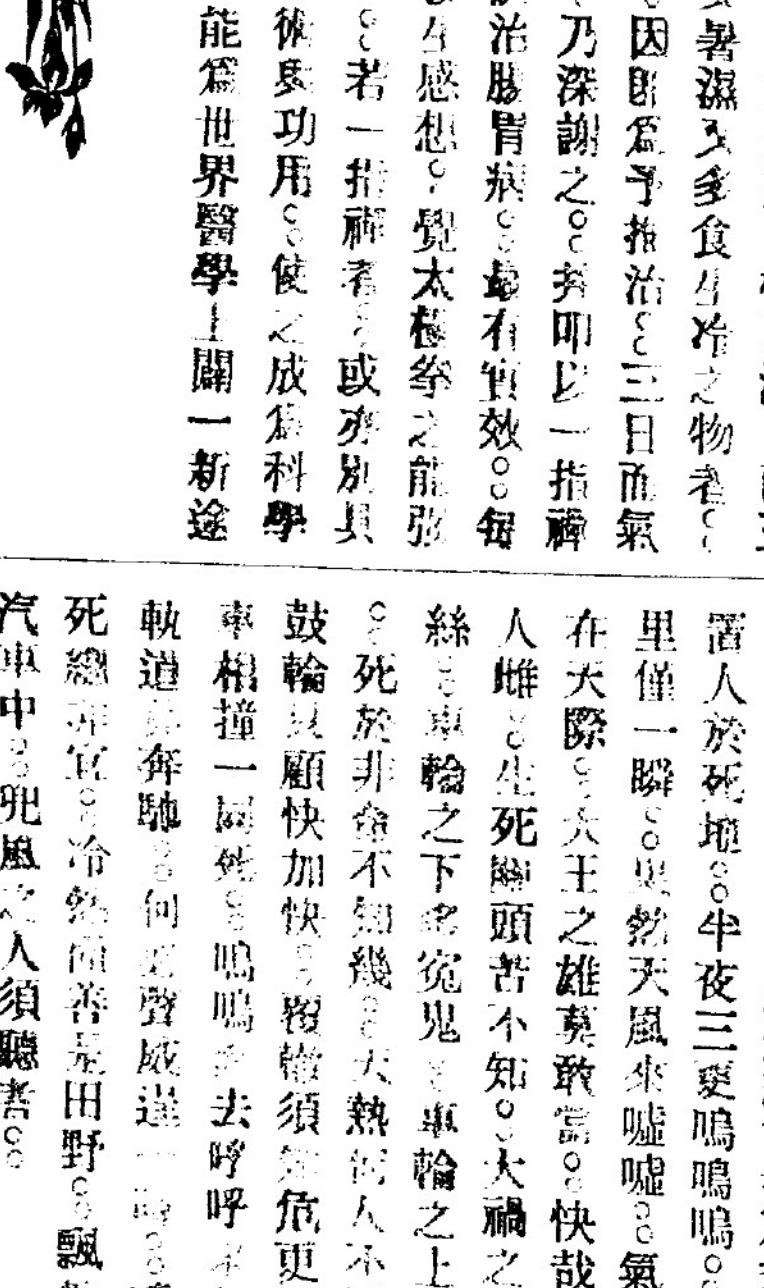 暑濕又多食生冷之物者。
因卽爲予推治。三日而氣
乃深謝之。并叩以一指禪
治腸胃病。最有實效。每
生感想。覺太極拳之能強
。若一指禪者。或亦別具
術與功用。使之成爲科學
能爲世界醫學上闢一新途
置人於死地。半夜三更嗚嗚嗚。
里僅一瞬。果然天風來噓噓。氣
在天際。大王之雄莫敢當。快哉
人雌。生死關頭苦不知。大禍之
絲。車輪之下多冤鬼。車輪之上
。死於非命不知幾。大熱何人不
鼓輪只顧快加快。覆轍須知危更
車相撞一同死。嗚嗚去呼呼
軌道奔馳。何聲威逞一時。
死總非宜。冷然而善是田野。飄
汽車中。兜風之人須聽者。